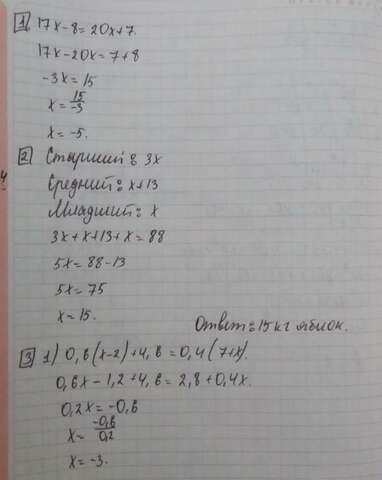 1 17x-8=20x+7.
17x-20x=7+8
-3x=15
x=15/-3
x=-5.
2 Старший: 3x
Средний: x+13
Младший: x
3x+x+13+x=88
5x=88-13
5x=75
x=15.
Ответ: 15кг яблок.
3 1) 0,6(x-2)+4,6=0,4(7+x).
0,6x-1,2+4,6=2,8+0,4x.
0,2x=-0,6
x=-0,6/0,2
x=-3.